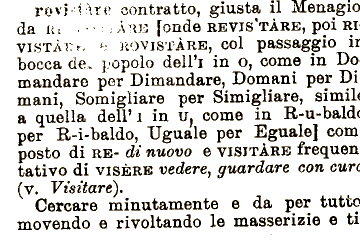 rovistàre contratto, giusta il Menagio
da [onde REVIS'TÀRE, poi RI-
VISTÀRE e ROVISTÀRE, col passaggio in
bocca del popolo dell'I in O, come in Do-
mandare per Dimandare, Domani per Di-
mani, Somigliare per Simigliare, simile
a quella dell' I in U, come in R-u-baldo
per R-i-baldo, Uguale per Eguale] com-
posto di RE- di nuovo e VISITÀRE frequen-
tativo di VISÈRE vedere, guardare con cura
(v. Visitare).
Cercare minutamente e da per tutto
movendo e rivoltando le masserizie e ti